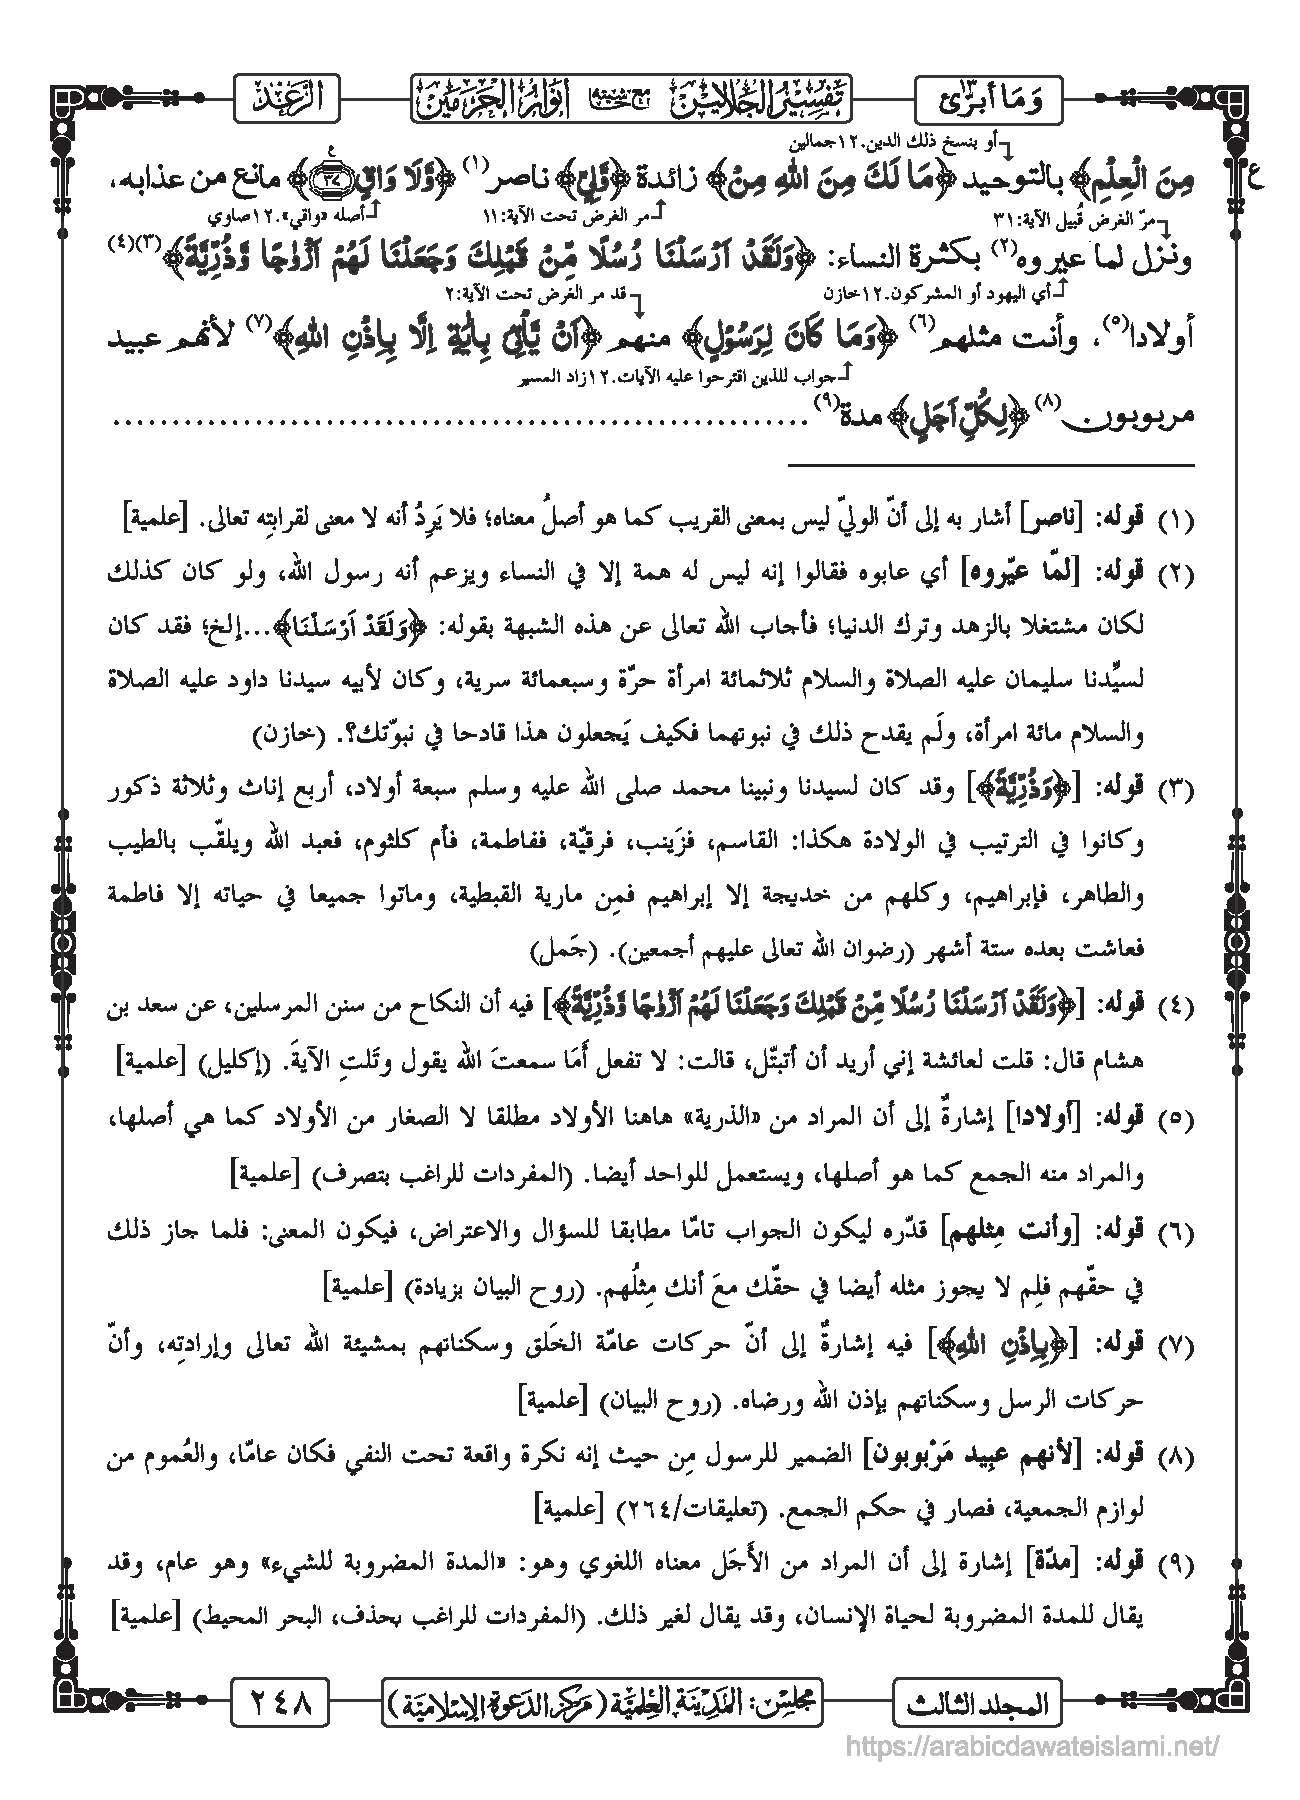 وَمَا أُبَرِّئُ ١٣
تفسير الجلالين مع حاشية أنوار الحرمين
الرَّعْد
أو بنسخ ذلك الدين.١٢جمالين
مِنَ الْعِلْمِ﴾ بالتوحيد ﴿مَا لَكَ مِنَ اللهِ مِنْ﴾ زائدة ﴿وَّلِيٍّ﴾ ناصر(١) ﴿وَّلَا وَاقٍ ﴿٣٧﴾﴾ مانع من عذابه،
ع
ع
مرّ الغرض قُبيل الآية:٣١
مر الغرض تحت الآية:١١
أصله «واقي».١٢صاوي
ونزل لما عيروه(٢) بكثرة النساء: ﴿وَلَقَدْ اَرْسَلْنَا رُسُلًا مِّنْ قَبْلِكَ وَجَعَلْنَا لَهُمْ اَزْوٰجًا وَّذُرِّيَّةً﴾(٣)(٤)
أي اليهود أو المشركون.١٢خازن
قد مر الغرض تحت الآية:٢
أولادا(٥)، وأنت مثلهم(٦) ﴿وَمَا كَانَ لِرَسُوْلٍ﴾ منهم ﴿اَنْ يَّاْتِيَ بِاٰيَةٍ اِلَّا بِاِذْنِ اللهِ﴾(٧) لأنهم عبيد
جواب للذين اقترحوا عليه الآيات.١٢زاد المسير
مربوبون(٨) ﴿لِكُلِّ اَجَلٍ﴾ مدة(٩) ............................................................
(١) قوله: [ناصر] أشار به إلى أنّ الوليّ ليس بمعنى القريب كما هو أصلُ معناه؛ فلا يَرِدُ أنه لا معنى لقرابتِه تعالى. [علمية]
(٢) قوله: [لمّا عيّروه] أي عابوه فقالوا إنه ليس له همة إلا في النساء ويزعم أنه رسول الله، ولو كان كذلك
لكان مشتغلا بالزهد وترك الدنيا؛ فأجاب الله تعالى عن هذه الشبهة بقوله: ﴿وَلَقَدْ اَرْسَلْنَا﴾...إلخ؛ فقد كان
لسيِّدنا سليمان عليه الصلاة والسلام ثلاثمائة امرأة حرّة وسبعمائة سرية، وكان لأبيه سيدنا داود عليه الصلاة
والسلام مائة امرأة، ولَم يقدح ذلك في نبوتهما فكيف يَجعلون هذا قادحا في نبوّتك؟. (خازن)
(٣) قوله: [﴿وَذُرِّيَّةً﴾] وقد كان لسيدنا ونبينا محمد صلى الله عليه وسلم سبعة أولاد، أربع إناث وثلاثة ذكور
وكانوا في الترتيب في الولادة هكذا: القاسم، فزَينب، فرقيّة، ففاطمة، فأم كلثوم، فعبد الله ويلقّب بالطيب
والطاهر، فإبراهيم، وكلهم من خديجة إلا إبراهيم فمِن مارية القبطية، وماتوا جميعا في حياته إلا فاطمة
فعاشت بعده ستة أشهر (رضوان الله تعالى عليهم أجمعين). (جَمل)
(٤) قوله: [﴿وَلَقَدْ اَرْسَلْنَا رُسُلًا مِّنْ قَبْلِكَ وَجَعَلْنَا لَهُمْ اَزْوٰجًا وَّذُرِّيَّةً﴾] فيه أن النكاح من سنن المرسلين، عن سعد بن
هشام قال: قلت لعائشة إني أريد أن أتبتّل، قالت: لا تفعل أَمَا سمعتَ الله يقول وتَلتِ الآيةَ. (إكليل) [علمية]
(٥) قوله: [أولادا] إشارةٌ إلى أن المراد من «الذرية» هاهنا الأولاد مطلقا لا الصغار من الأولاد كما هي أصلها،
والمراد منه الجمع كما هو أصلها، ويستعمل للواحد أيضا. (المفردات للراغب بتصرف) [علمية]
(٦) قوله: [وأنت مِثلهم] قدّره ليكون الجواب تامّا مطابقا للسؤال والاعتراض، فيكون المعنى: فلما جاز ذلك
في حقّهم فلِم لا يجوز مثله أيضا في حقّك معَ أنك مِثلُهم. (روح البيان بزيادة) [علمية]
(٧) قوله: [﴿بِاِذْنِ اللهِ﴾] فيه إشارةٌ إلى أنّ حركات عامّة الخَلق وسكناتهم بمشيئة الله تعالى وإرادتِه، وأنّ
حركات الرسل وسكناتهم بإذن الله ورضاه. (روح البيان) [علمية]
(٨) قوله: [لأنهم عبِيد مَرْبوبون] الضمير للرسول مِن حيث إنه نكرة واقعة تحت النفي فكان عامّا، والعُموم من
لوازم الجمعية، فصار في حكم الجمع. (تعليقات/٢٦٤) [علمية]
(٩) قوله: [مدّة] إشارة إلى أن المراد من الأَجَل معناه اللغوي وهو: «المدة المضروبة للشيء» وهو عام، وقد
يقال للمدة المضروبة لحياة الإنسان، وقد يقال لغير ذلك. (المفردات للراغب بحذف، البحر المحيط) [علمية]
المجلد الثالث
مجلس: المدينة العلمية (مركز الدعوة الإسلامية)
٢٤٨
https://arabicdawateislami.net/